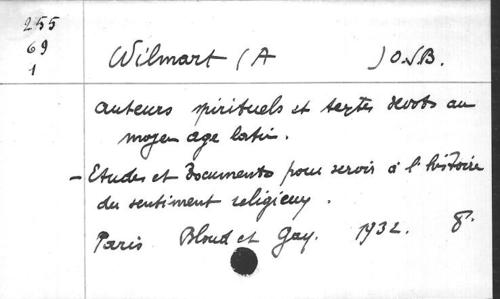 255
69
1
Wilmart (A ) O.S.B.
Auteurs spirituels et textes dévots au
moyen age latin.
- Etudes et Documents pour servir à l'histoire
du sentiment religieux.
Paris Bloud et Gay. 1932. 8°.